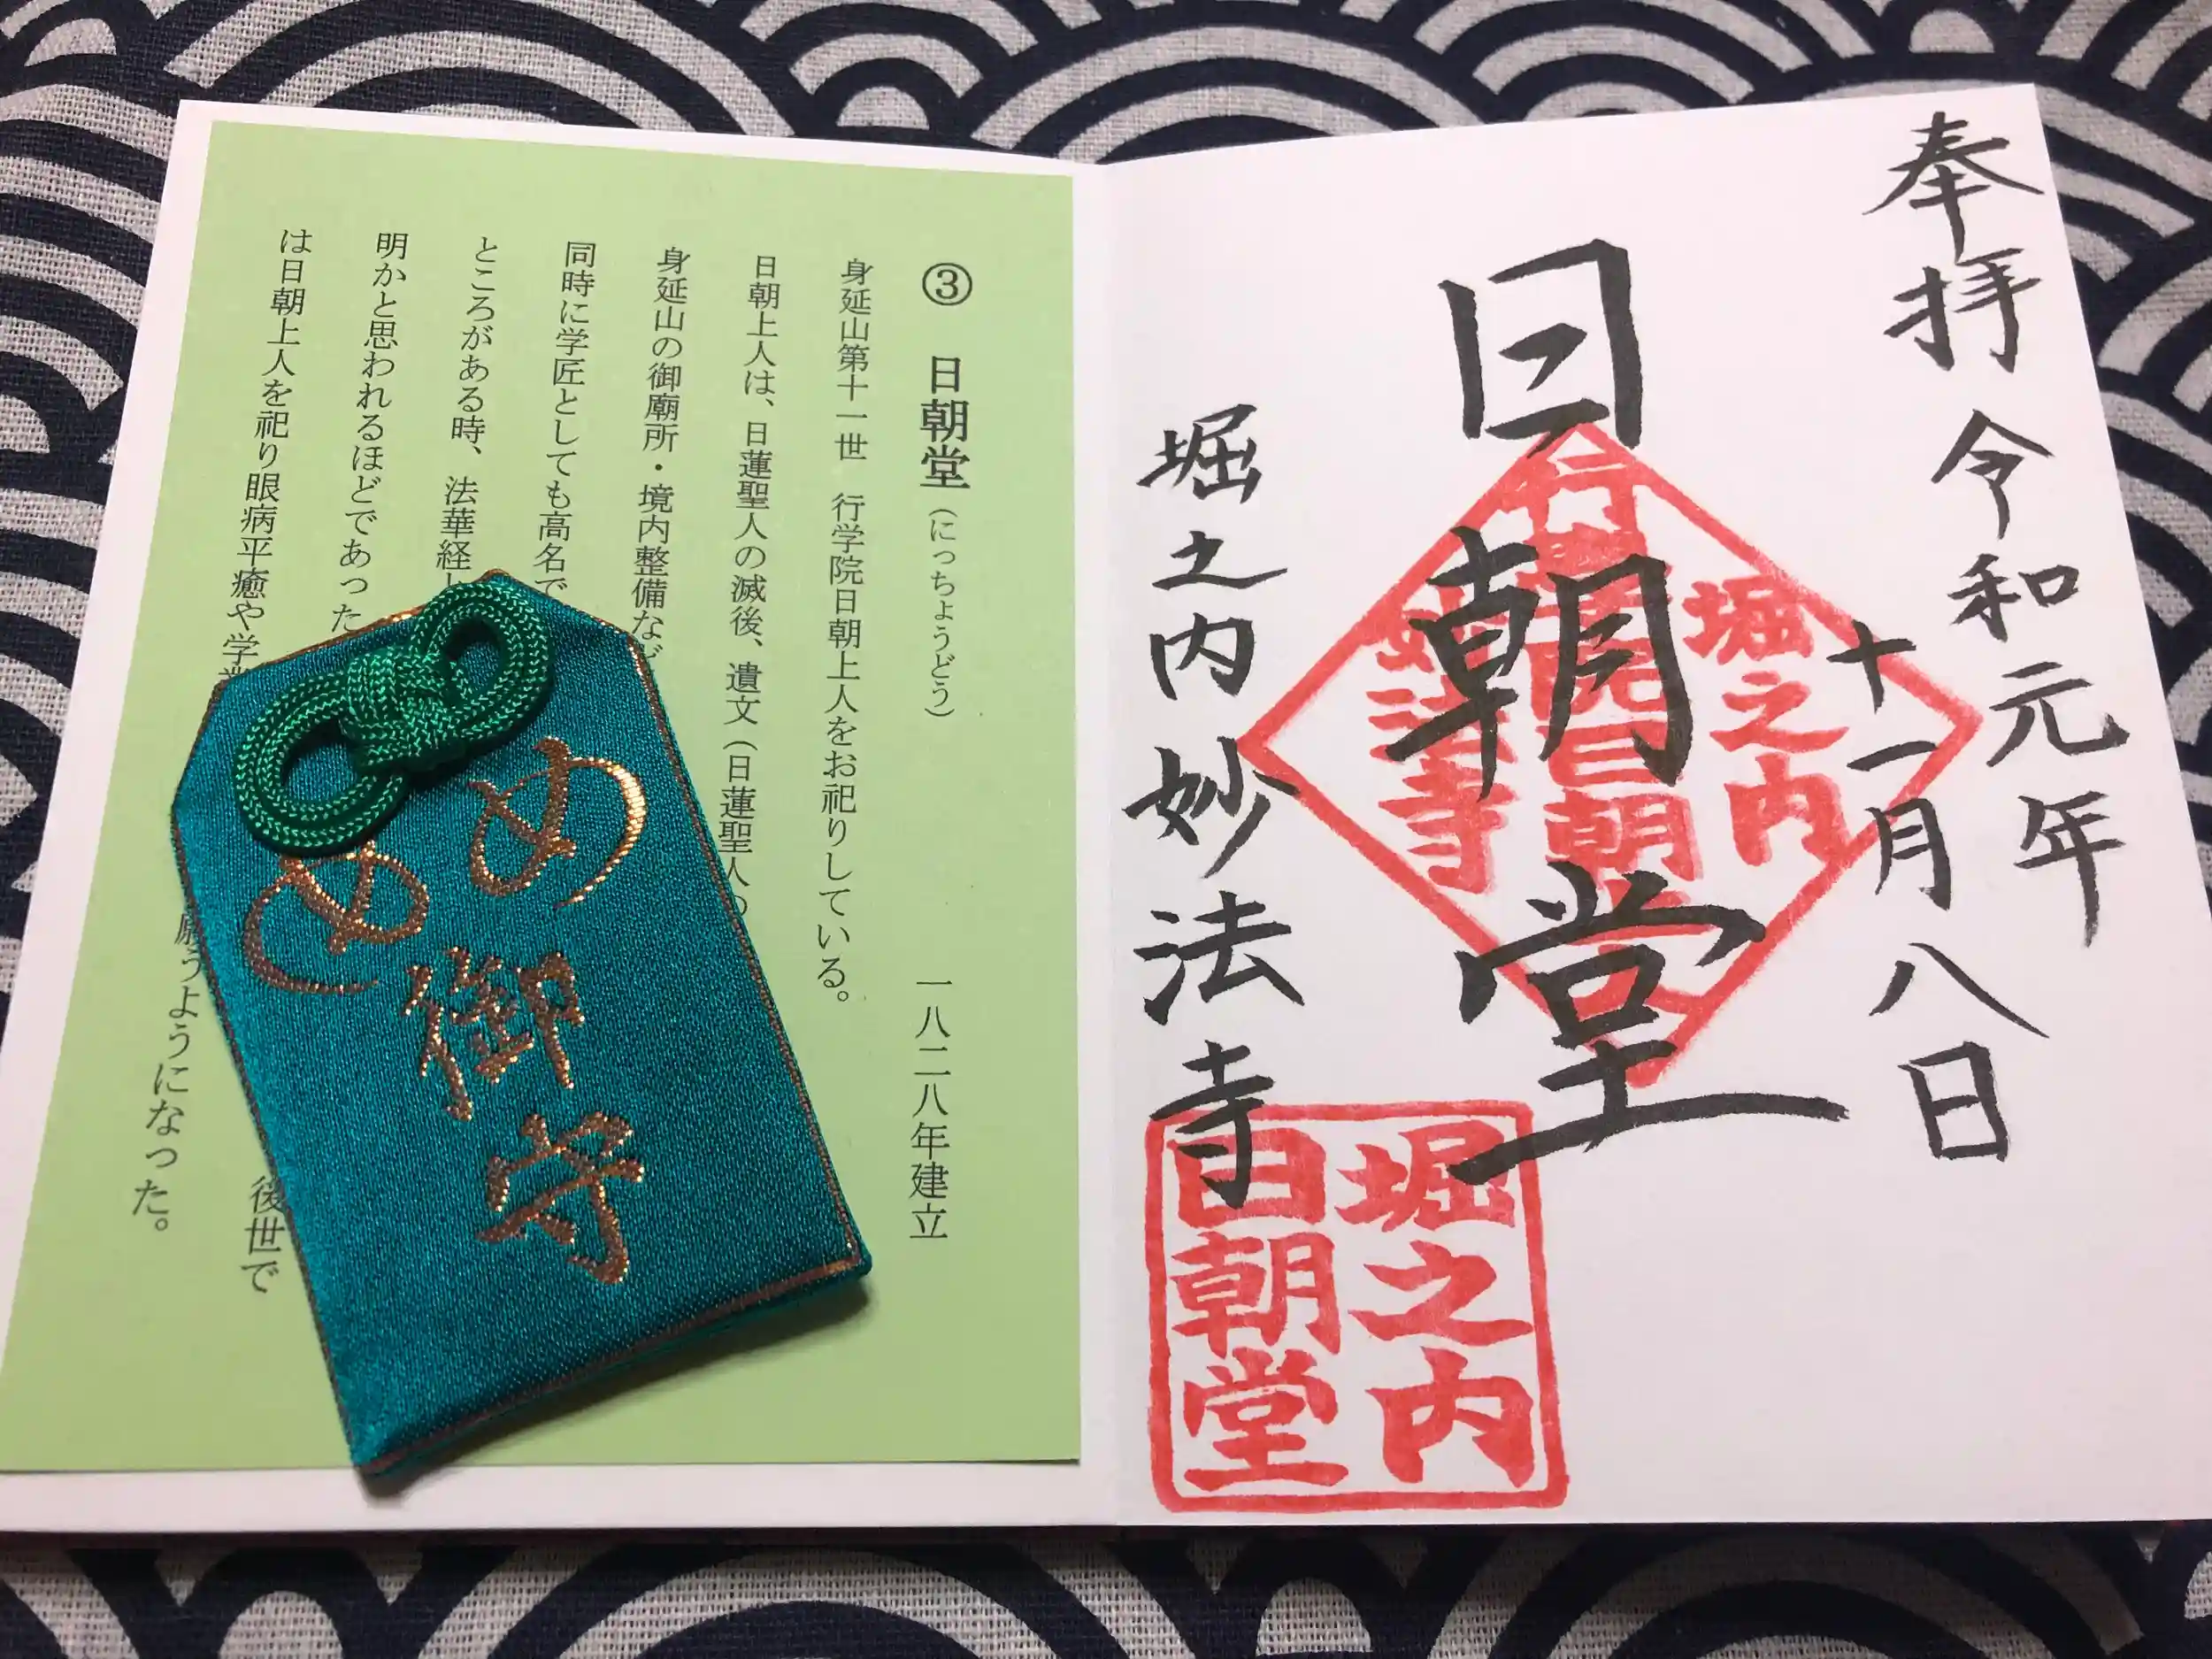 奉拝
令和元年
十一月八日
日朝堂
堀之内妙法寺
堀之内
妙法寺
堀之内
日朝堂
③ 日朝堂(にっちょうどう) 一八二八年建立
身延山第十一世 行学院日朝上人をお祀りしている。
日朝上人は、日蓮聖人の滅後、遺文(日蓮聖人の
身延山の御廟所・境内整備など
同時に学匠としても高名で
ところがある時、法華経
明かと思われるほどであった 後世で
は日朝上人を祀り眼病平癒や学業 願うようになった。
めめ御守